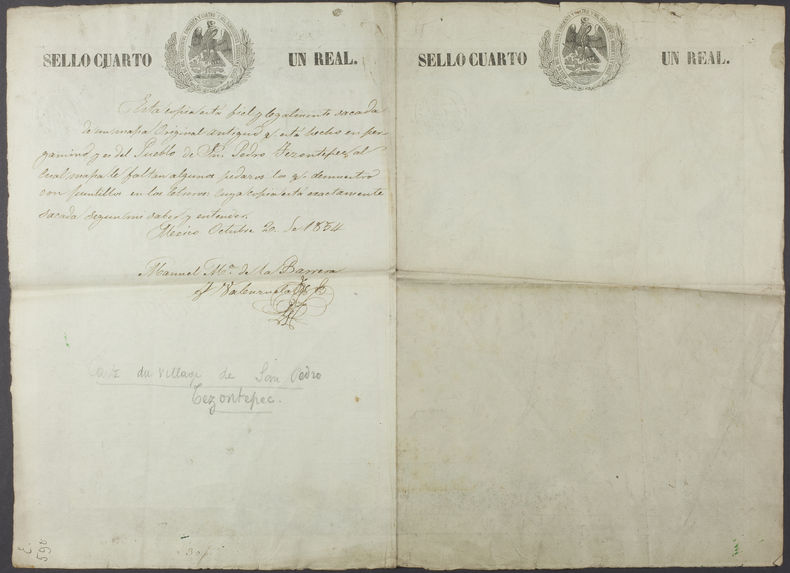 SELLO CUARTO UN REAL.
Esta copia está fiel y legalmente sacada
de un mapa Original antiguo q. está hecho en per-
gamino y es del Pueblo de Sn. Pedro Tezontepec, al
cual mapa le faltan algunos pedazos los q. demuestro
con puntillos en los claros: cuya copia está exactamente
sacada segun mi saber y entender.
Mexico Octubre 20 de 1854
Manuel Ma. de la Barrera
y Valenzuela
Carte du village de San Pedro
Tezontepec.
E.
590
SELLO CUARTO UN REAL.